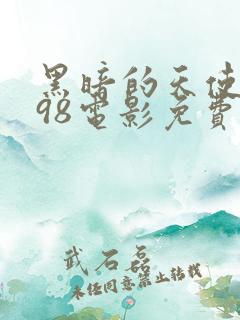 黑暗的天使
98電影免費
武石磊
未经同意禁止转载